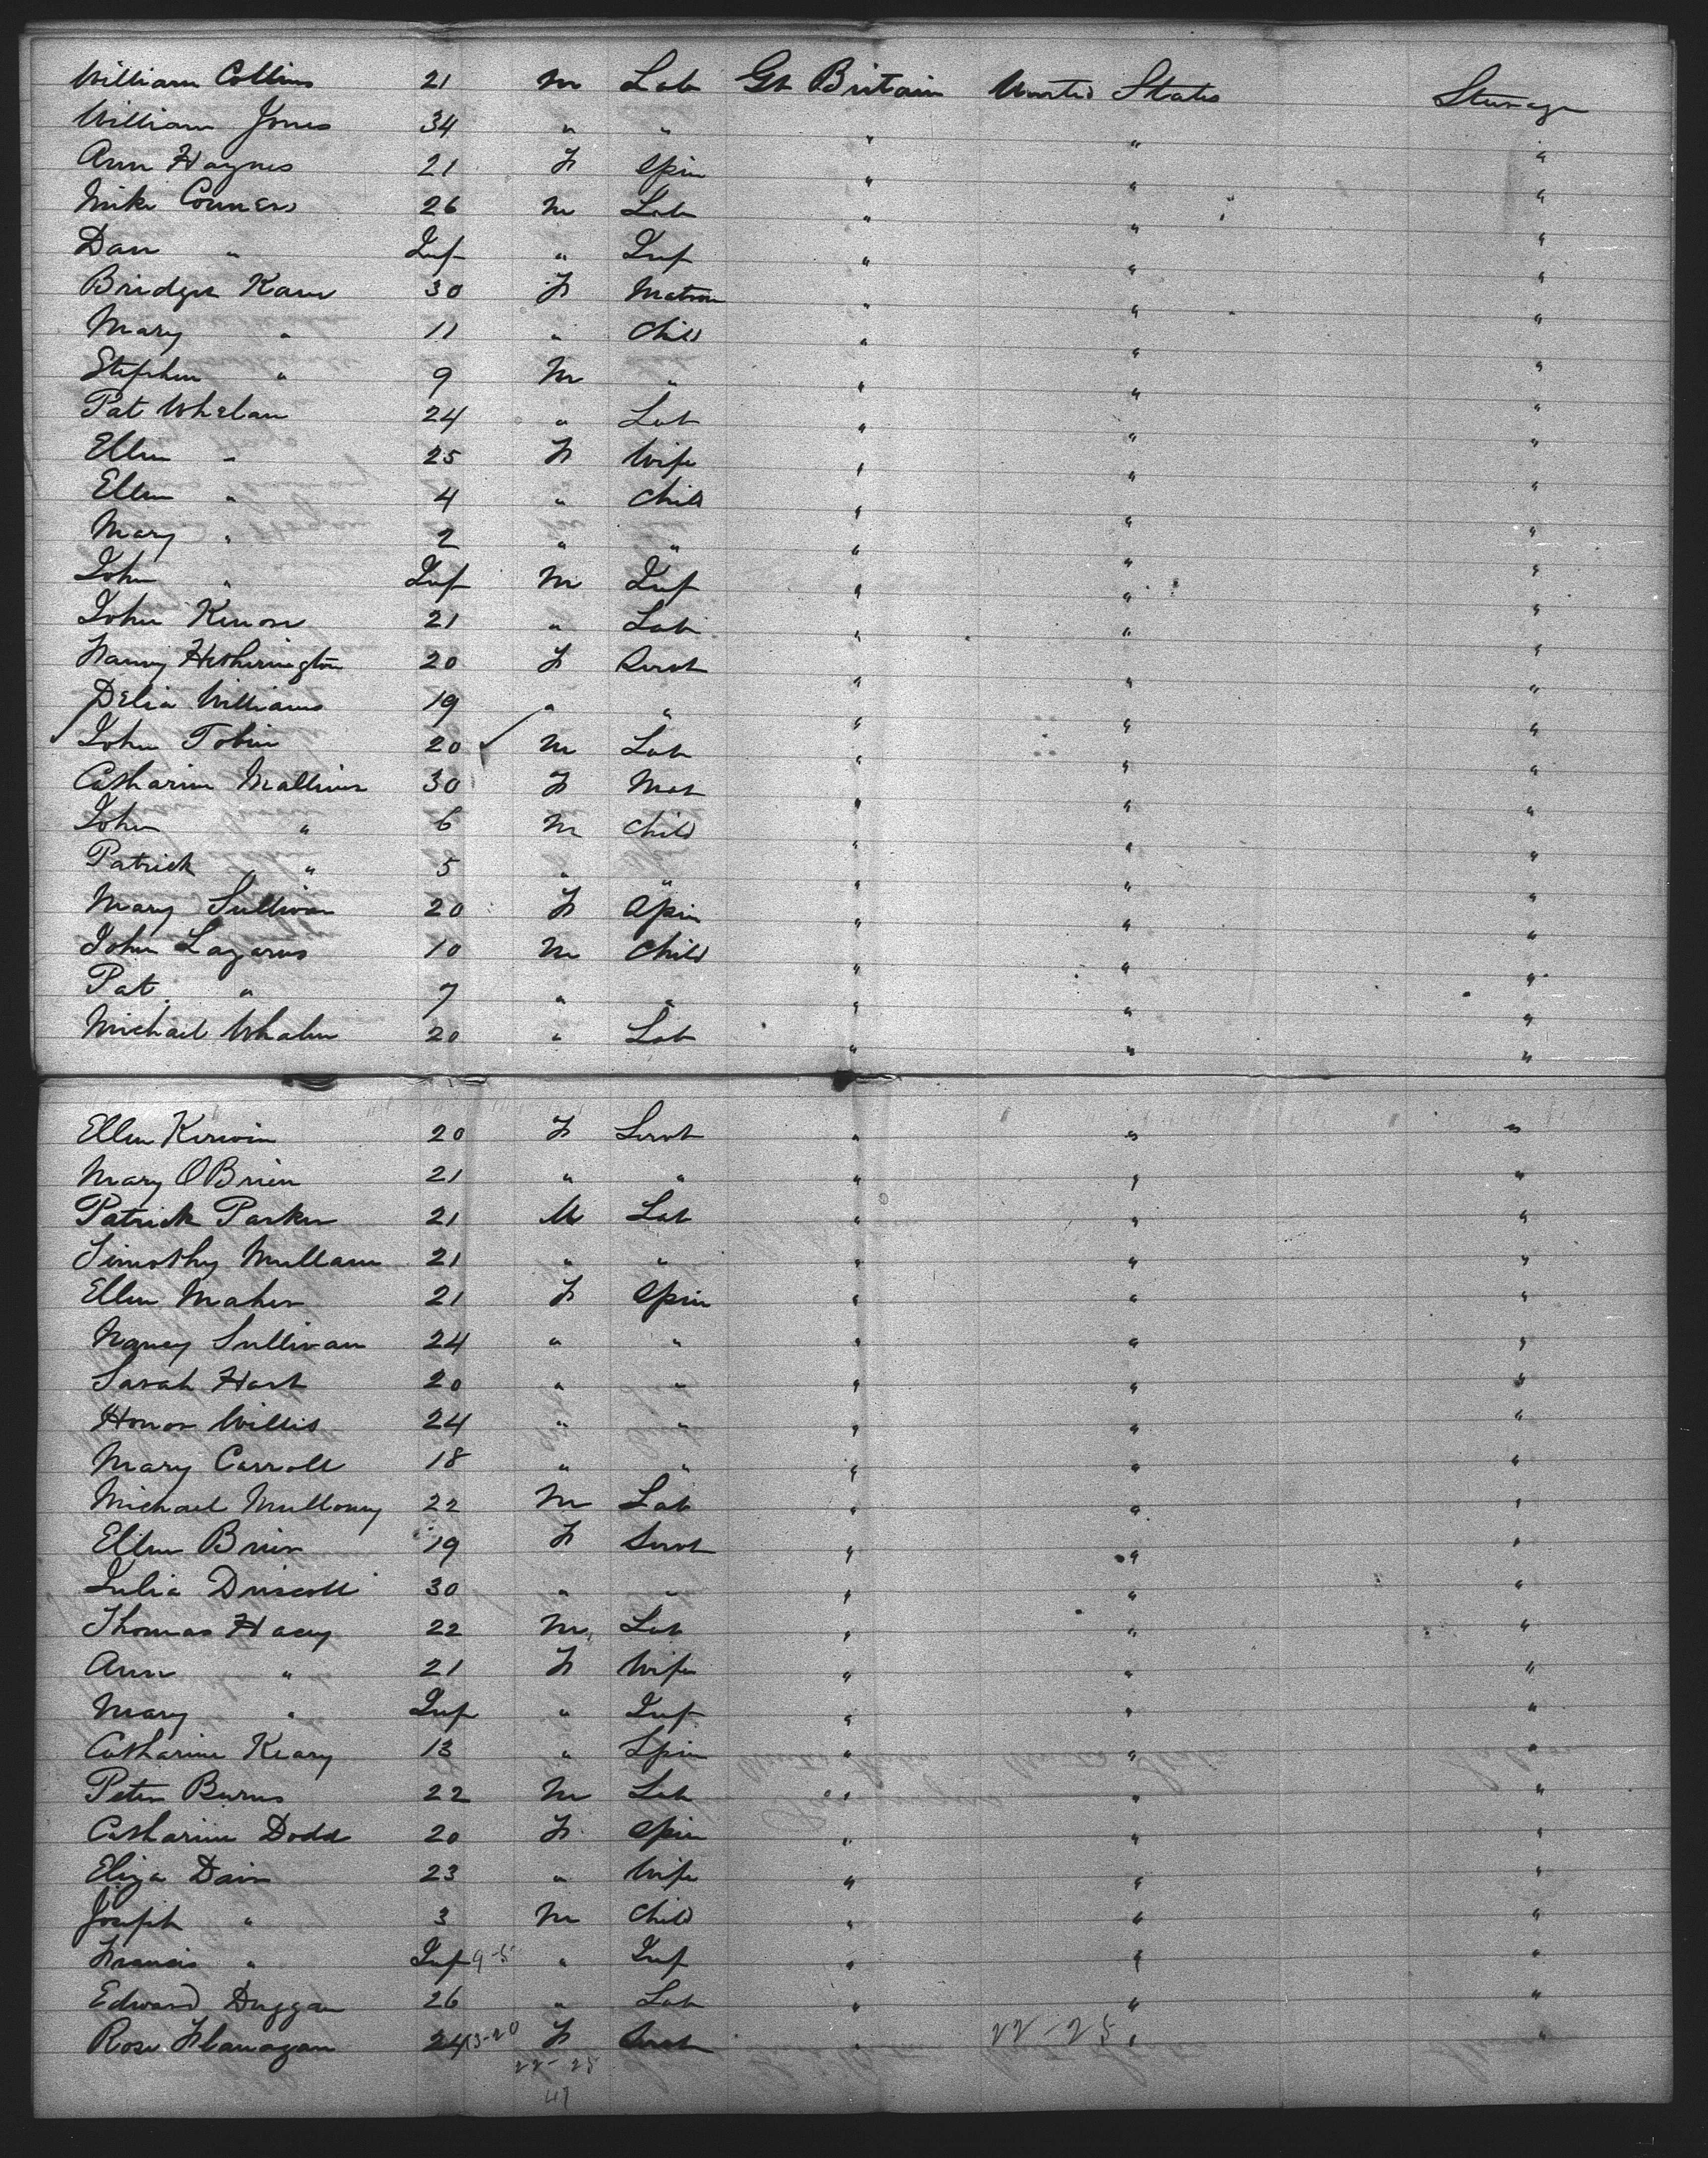 William Collins 21 M Lab Gt Britain United States Steerage
William Jones 34 " " " " "
Ann Haynes 21 F Spin " " "
Mike Conners 26 M Lab " " "
Dan " Inf " Inf " " "
Bridget Kane 30 F Matron " " "
Mary " 11 " Child " " "
Stephen " 9 M " " " "
Pat Whelan 24 " Lab " " "
Ellen " 25 F Wife " " "
Ellen " 4 " Child " " "
Mary " 2 " " " " "
John " Inf M Inf " " "
John 21 " Lab " " "
Fanny Hetherington 20 F Servt " " "
Delia Williams 19 " " " " "
John Tobin 20 M Lab " " "
Catharine 30 F Mat " " "
John " 6 M Child " " "
Patrick " 5 " " " " "
Mary Sullivan 20 F Spin " " "
John Lazarus 10 M Child " " "
Pat " 7 " " " " "
Michael Whalen 20 " Lab " " "
Ellen Kerwin 20 F Servt " " "
Mary OBrien 21 " " " " "
Patrick Parker 21 M Lab " " "
Timothy Mullane 21 " " " " "
Ellen Maher 21 F Spin " " "
Nancy Sullivan 24 " " " " "
Sarah Hart 20 " " " " "
Honor Willis 24 " " " " "
Mary Carroll 18 " " " " "
Michael Mullowny 22 M Lab " " "
Ellen Brien 19 F Servt " " "
Julia Driscoll 30 " " " " "
Thomas Hacey 22 M Lab " " "
Ann " 21 F Wife " " "
Mary " Inf " Inf " " "
Catharine Keary 13 " Spin " " "
Peter Burns 22 M Lab " " "
Catharine Dodd 20 F Spin " " "
Eliza Davis 23 " Wife " " "
Joseph " 3 M Child " " "
Francis " Inf 9-5 " Inf " " "
Edward Duggan 26 " Lab " " "
Rose Flanagan 24 13-20 F Servt " 22-25 " "
22-25